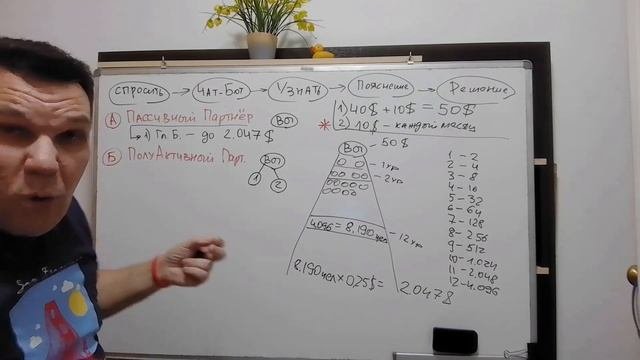 спросить → Чат-Бот → Узнать → Пояснение → Решение
А Пассивный Партнёр Вы
1) Гл.Б. – до 2.047$
Б ПолуАктивный Парт.
Вы
1 2
1) 40$ + 10$ = 50$
* 2) 10$ – каждый месяц
Вы – 50$
– 1 ур
– 2 ур
4096 = 8.190 чел – 12 ур
8.190 чел × 0,25$ = 2.047$
1 – 2
2 – 4
3 – 8
4 – 16
5 – 32
6 – 64
7 – 128
8 – 256
9 – 512
10 – 1.024
11 – 2.048
12 – 4.096